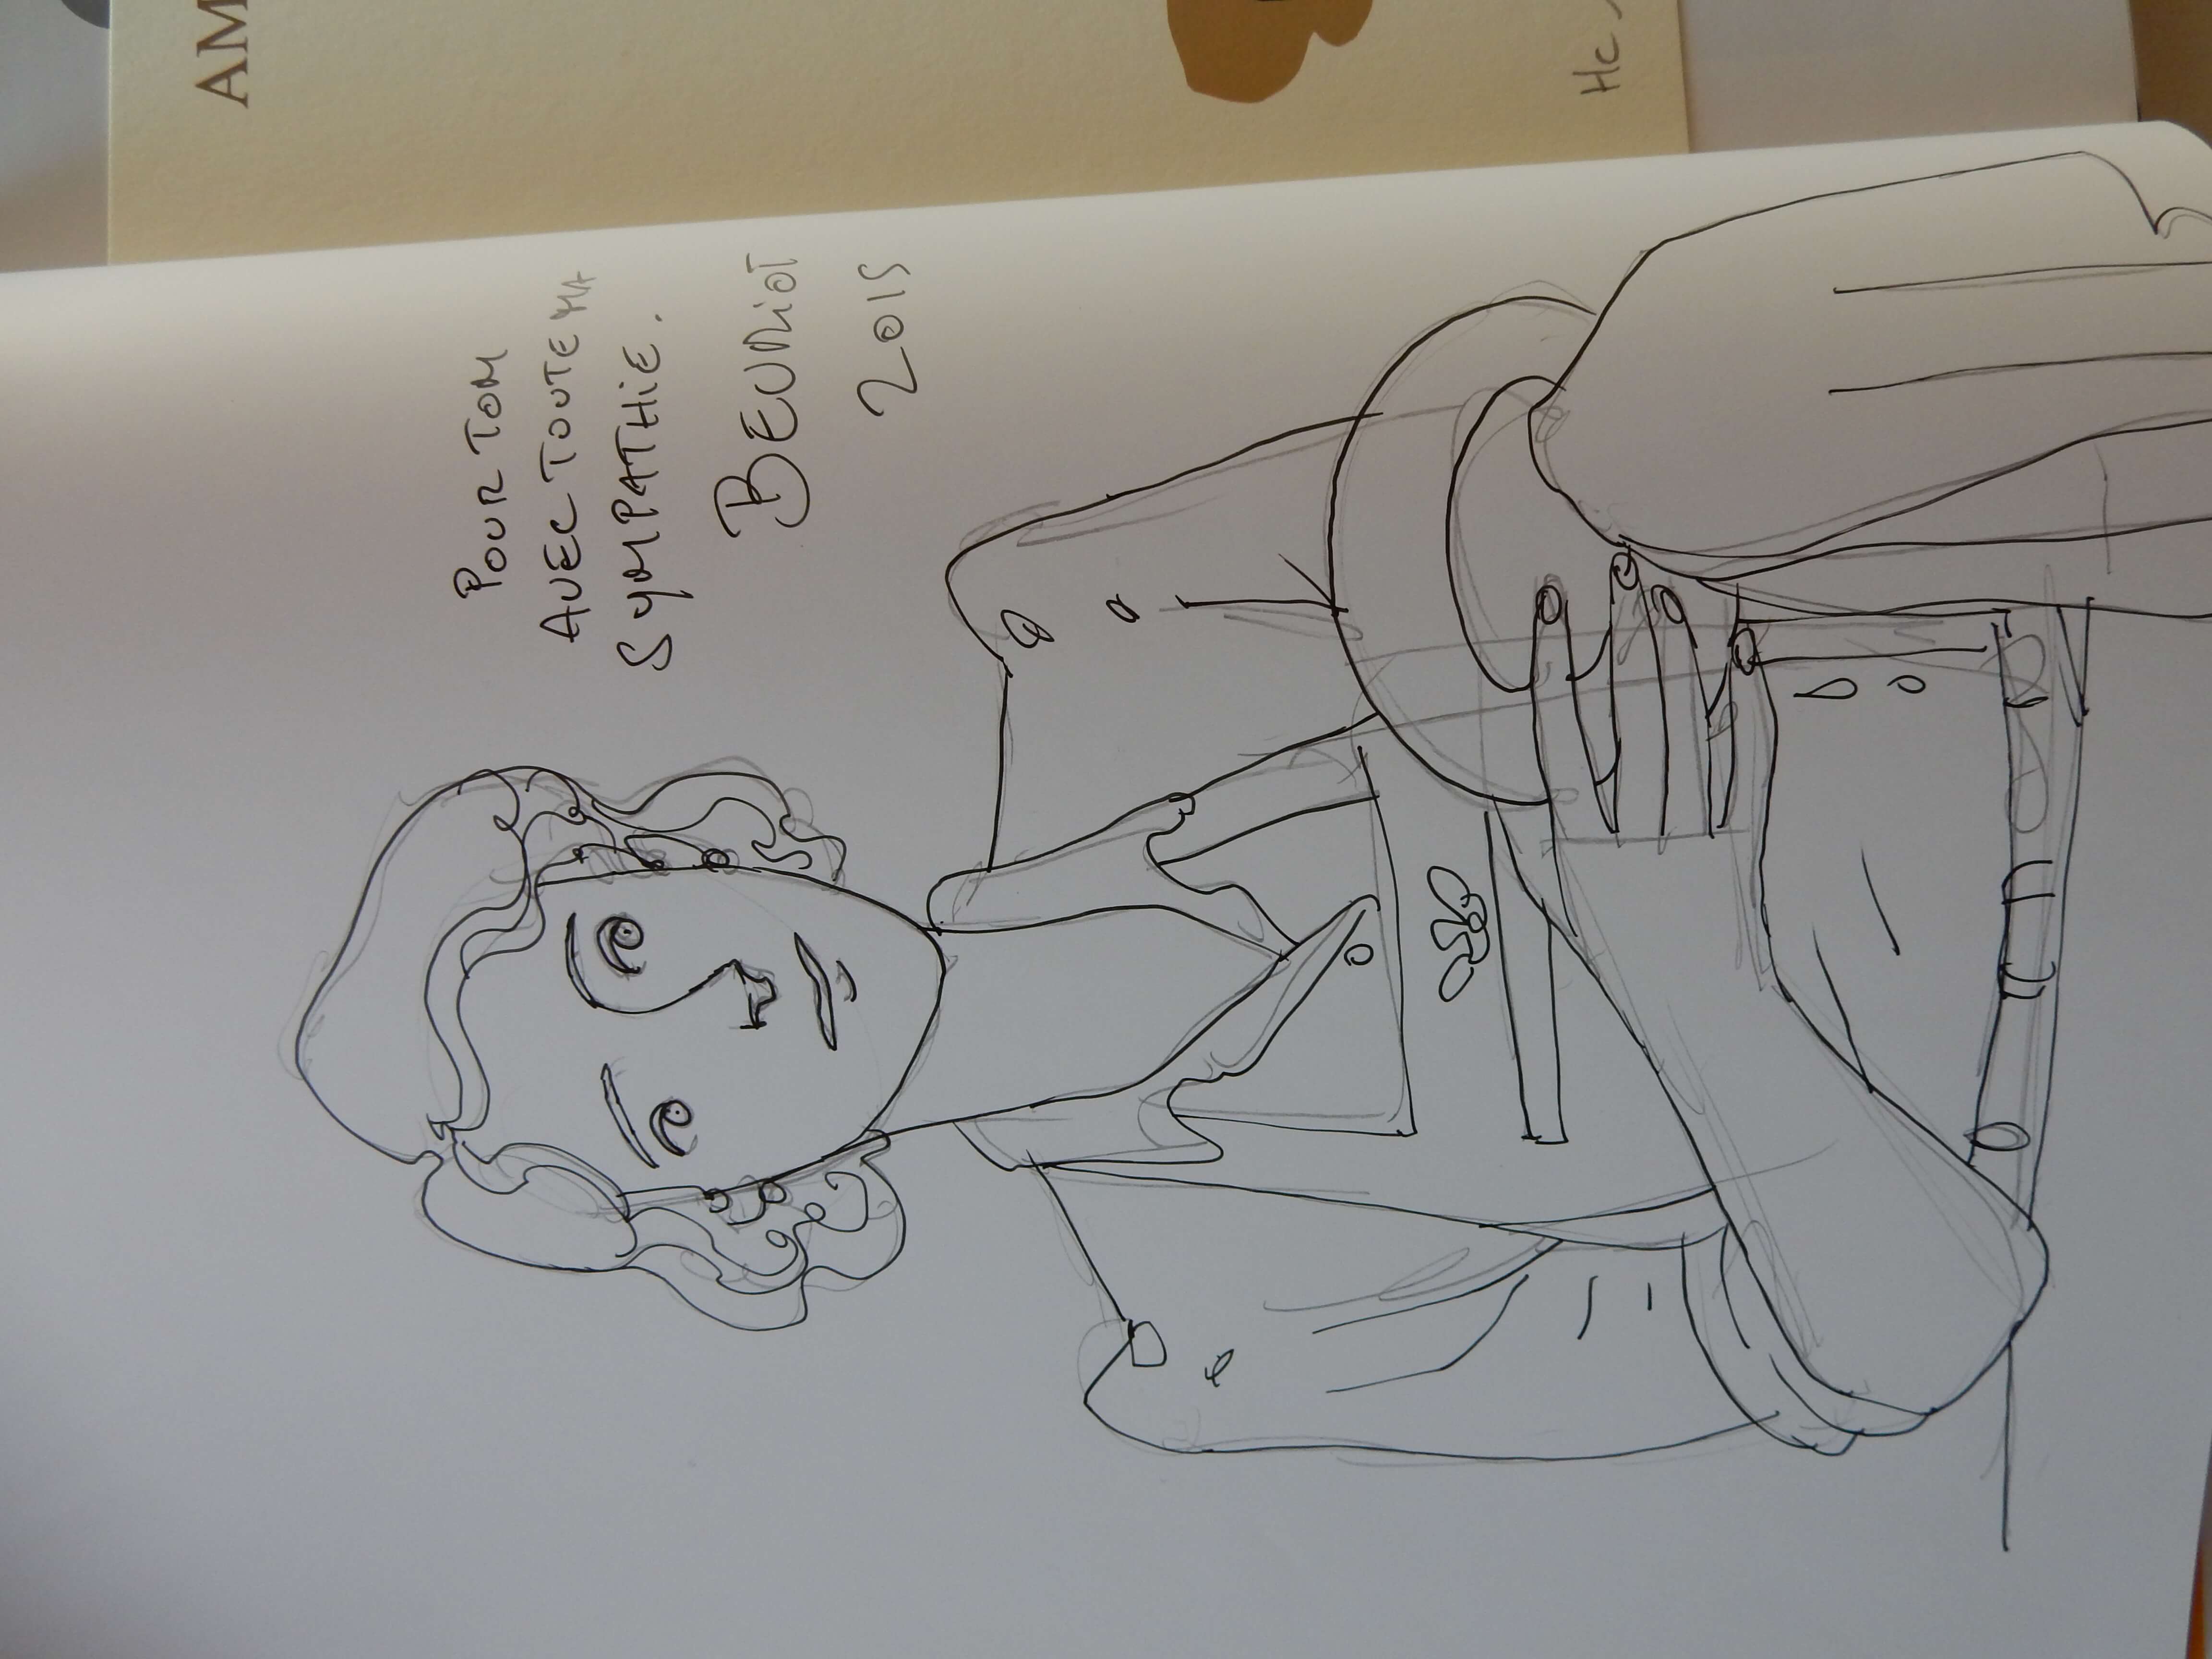 POUR TOM
AVEC TOUTE MA
SYMPATHIE.
BEURIOT
2015
AM
HC